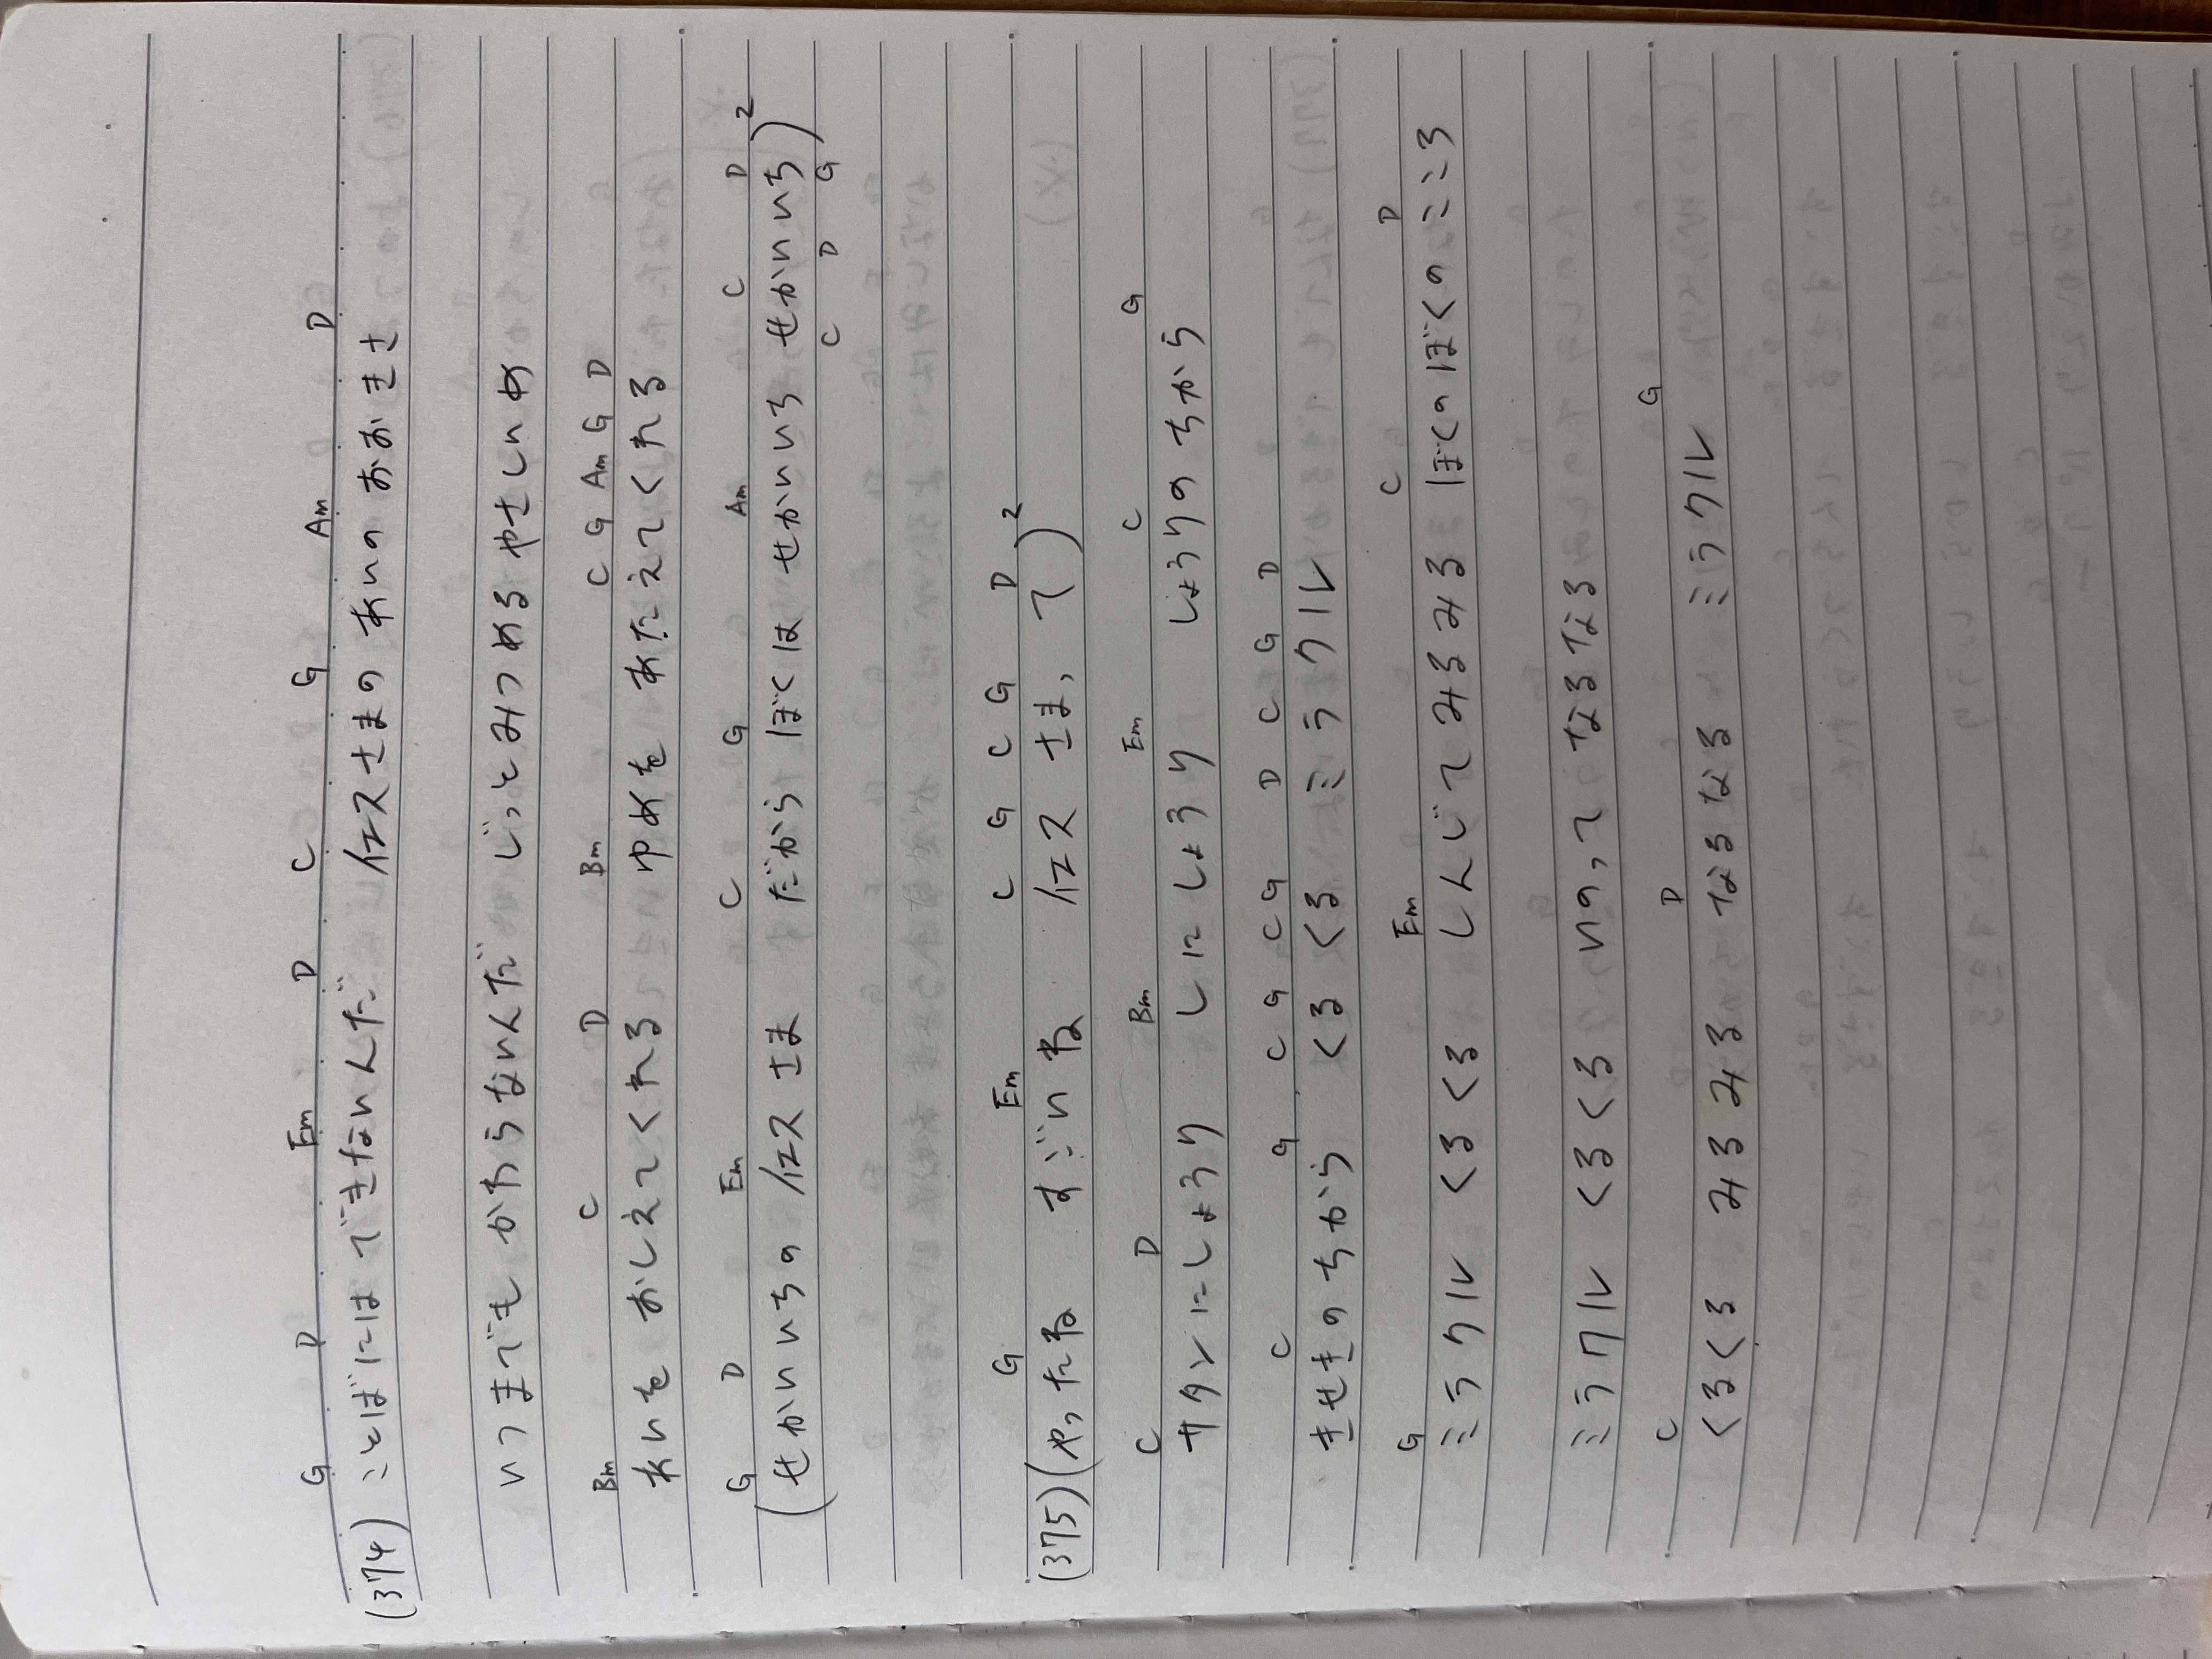 G D Em D C G Am D
(374) ことばには できないんだ イエスさまの あいの おおきさ
いつまでも かわらないんだ じっとみつめる やさしいめ
Bm C D Bm C G Am G D
あいを おしえてくれる ゆめを あたえてくれる
G D Em C G Am C D
(せかいいちの イエスさま だから ぼくは せかいいち せかいいち)2
C D G
G Em C G C G D
(375) (やったね すごいね イエスさま、て)2
C D Bm Em C G
サタンにしょうり しにしょうり しょうりの ちから
C G C G C G D C G D
きせきの ちから くるくる ミラクル
G Em C D
ミラクル くるくる しんじてみるみる ぼくのぼくのこころ
ミラクル くるくる いのって なるなる
C D G
くるくる みるみる なるなる ミラクル